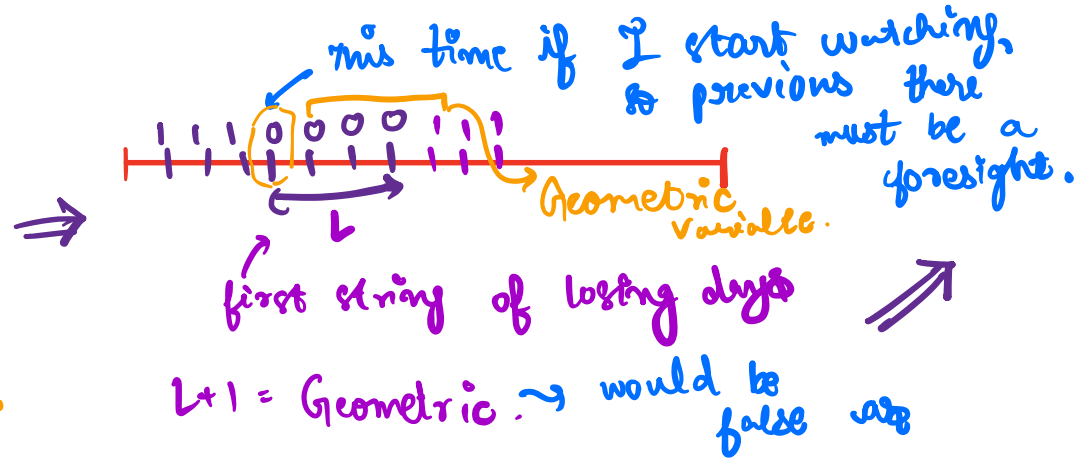 This time if I start watching,
so previous there
must be a
foresight.
1 1 1 0 0 0 0 1 1 1
Geometric
Variable.
L
first string of losing days
L+1 = Geometric. → would be
false as